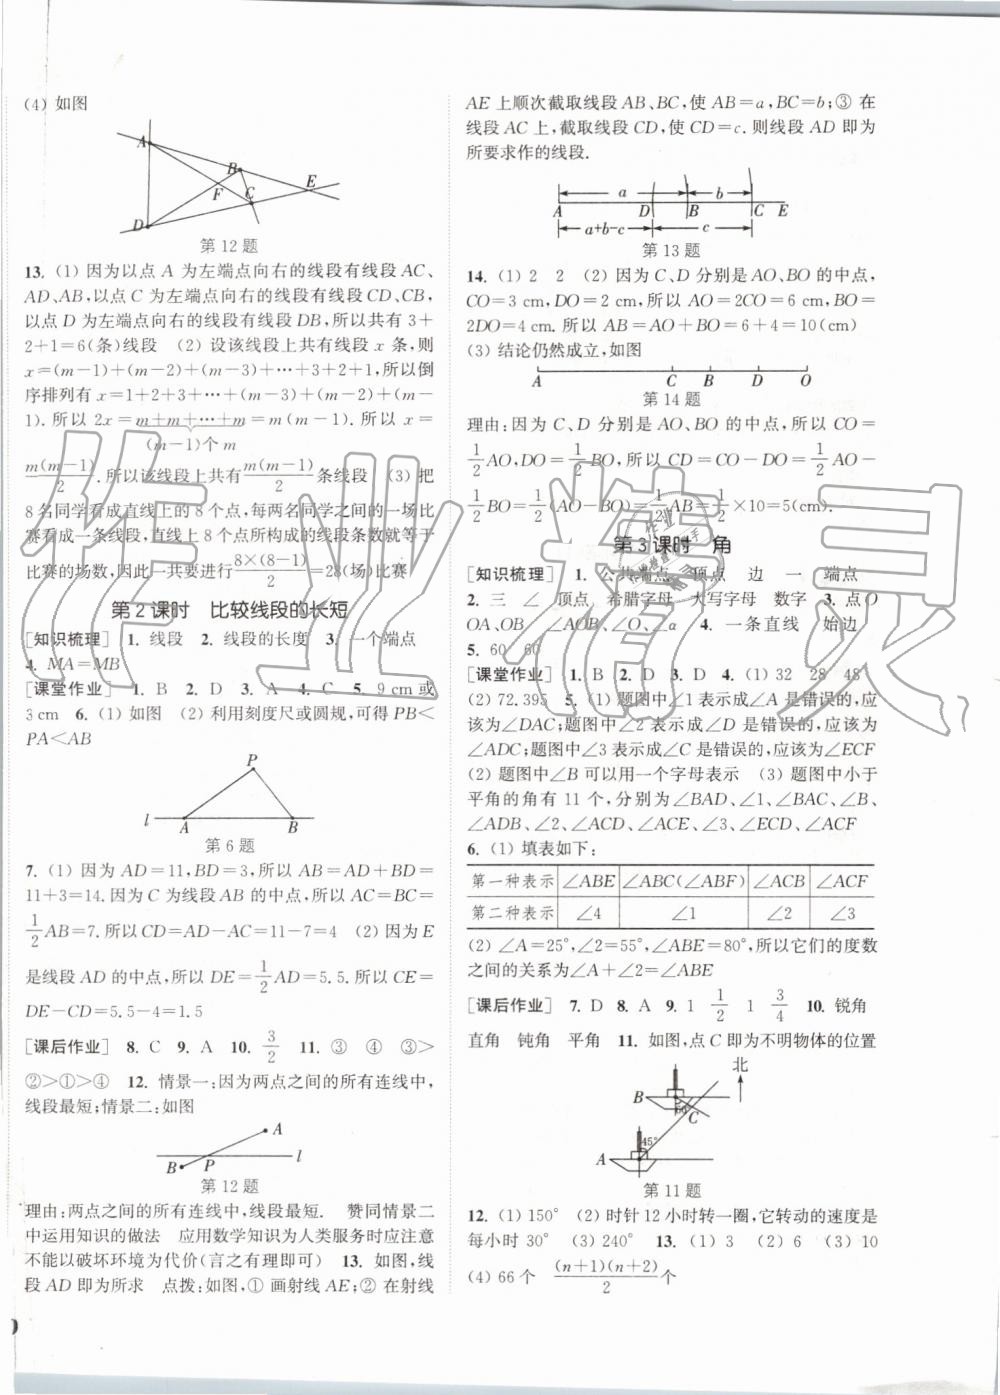 (4) 如图
A
B
F
C
E
D
第12题
13. (1) 因为以点 A 为左端点向右的线段有线段 AC、
AD、AB,以点 C 为左端点向右的线段有线段 CD、CB,
以点 D 为左端点向右的线段有线段 DB,所以共有 3+
2+1=6(条)线段 (2) 设该线段上共有线段 x 条,则
x=(m-1)+(m-2)+(m-3)+…+3+2+1,所以倒
序排列有 x=1+2+3+…+(m-3)+(m-2)+(m-
1). 所以 2x=m+m+…+m=m(m-1). 所以 x=
(m-1)个 m
m(m-1)/2. 所以该线段上共有 m(m-1)/2 条线段 (3) 把
8 名同学看成直线上的 8 个点,每两名同学之间的一场比
赛看成一条线段,直线上 8 个点所构成的线段条数就等于
比赛的场数,因此一共要进行 8×(8-1)/2=28(场)比赛
第2课时 比较线段的长短
[知识梳理] 1. 线段 2. 线段的长度 3. 一个端点
4. MA=MB
[课堂作业] 1. B 2. D 3. A 4. C 5. 9 cm 或
3 cm 6. (1) 如图 (2) 利用刻度尺或圆规,可得 PB<
PA<AB
P
l
A
B
第6题
7. (1) 因为 AD=11,BD=3,所以 AB=AD+BD=
11+3=14. 因为 C 为线段 AB 的中点,所以 AC=BC=
1/2 AB=7. 所以 CD=AD-AC=11-7=4 (2) 因为 E
是线段 AD 的中点,所以 DE=1/2 AD=5.5. 所以 CE=
DE-CD=5.5-4=1.5
[课后作业] 8. C 9. A 10. 3/2 11. ③ ④ ③>
②>①>④ 12. 情景一:因为两点之间的所有连线中,
线段最短;情景二:如图
A
B
P
l
第12题
理由:两点之间的所有连线中,线段最短. 赞同情景二
中运用知识的做法 应用数学知识为人类服务时应注意
不能以破坏环境为代价(言之有理即可) 13. 如图,线
段 AD 即为所求 点拨:如图,① 画射线 AE;② 在射线
AE 上顺次截取线段 AB、BC,使 AB=a,BC=b;③ 在
线段 AC 上,截取线段 CD,使 CD=c. 则线段 AD 即为
所要求作的线段.
a b
A D B C E
a+b-c c
第13题
14. (1) 2 2 (2) 因为 C、D 分别是 AO、BO 的中点,
CO=3 cm,DO=2 cm,所以 AO=2CO=6 cm,BO=
2DO=4 cm. 所以 AB=AO+BO=6+4=10(cm)
(3) 结论仍然成立,如图
A C B D O
第14题
理由:因为 C、D 分别是 AO、BO 的中点,所以 CO=
1/2 AO,DO=1/2 BO,所以 CD=CO-DO=1/2 AO-
1/2 BO=1/2(AO-BO)=1/2 AB=1/2×10=5(cm).
第3课时 角
[知识梳理] 1. 公共端点 顶点 边 一 端点
2. 三 ∠ 顶点 希腊字母 大写字母 数字 3. 点O
OA、OB ∠AOB、∠O、∠α 4. 一条直线 始边
5. 60 60
[课堂作业] 1. B 2. D 3. D 4. (1) 32 28 48
(2) 72.395 5. (1) 题图中∠1表示成∠A 是错误的,应
该为∠DAC;题图中∠2 表示成∠D 是错误的,应该为
∠ADC;题图中∠3 表示成∠C 是错误的,应该为∠ECF
(2) 题图中∠B 可以用一个字母表示 (3) 题图中小于
平角的角有 11 个,分别为∠BAD、∠1、∠BAC、∠B、
∠ADB、∠2、∠ACD、∠ACE、∠3、∠ECD、∠ACF
6. (1) 填表如下:
第一种表示 ∠ABE ∠ABC(∠ABF) ∠ACB ∠ACF
第二种表示 ∠4 ∠1 ∠2 ∠3
(2) ∠A=25°,∠2=55°,∠ABE=80°,所以它们的度数
之间的关系为∠A+∠2=∠ABE
[课后作业] 7. D 8. A 9. 1 1/2 1 3/4 10. 锐角
直角 钝角 平角 11. 如图,点 C 即为不明物体的位置
北
B
60°
C
45°
A
第11题
12. (1) 150° (2) 时针 12 小时转一圈,它转动的速度是
每小时 30° (3) 240° 13. (1) 3 (2) 6 (3) 10
(4) 66 个 (n+1)(n+2)/2 个
作业精灵